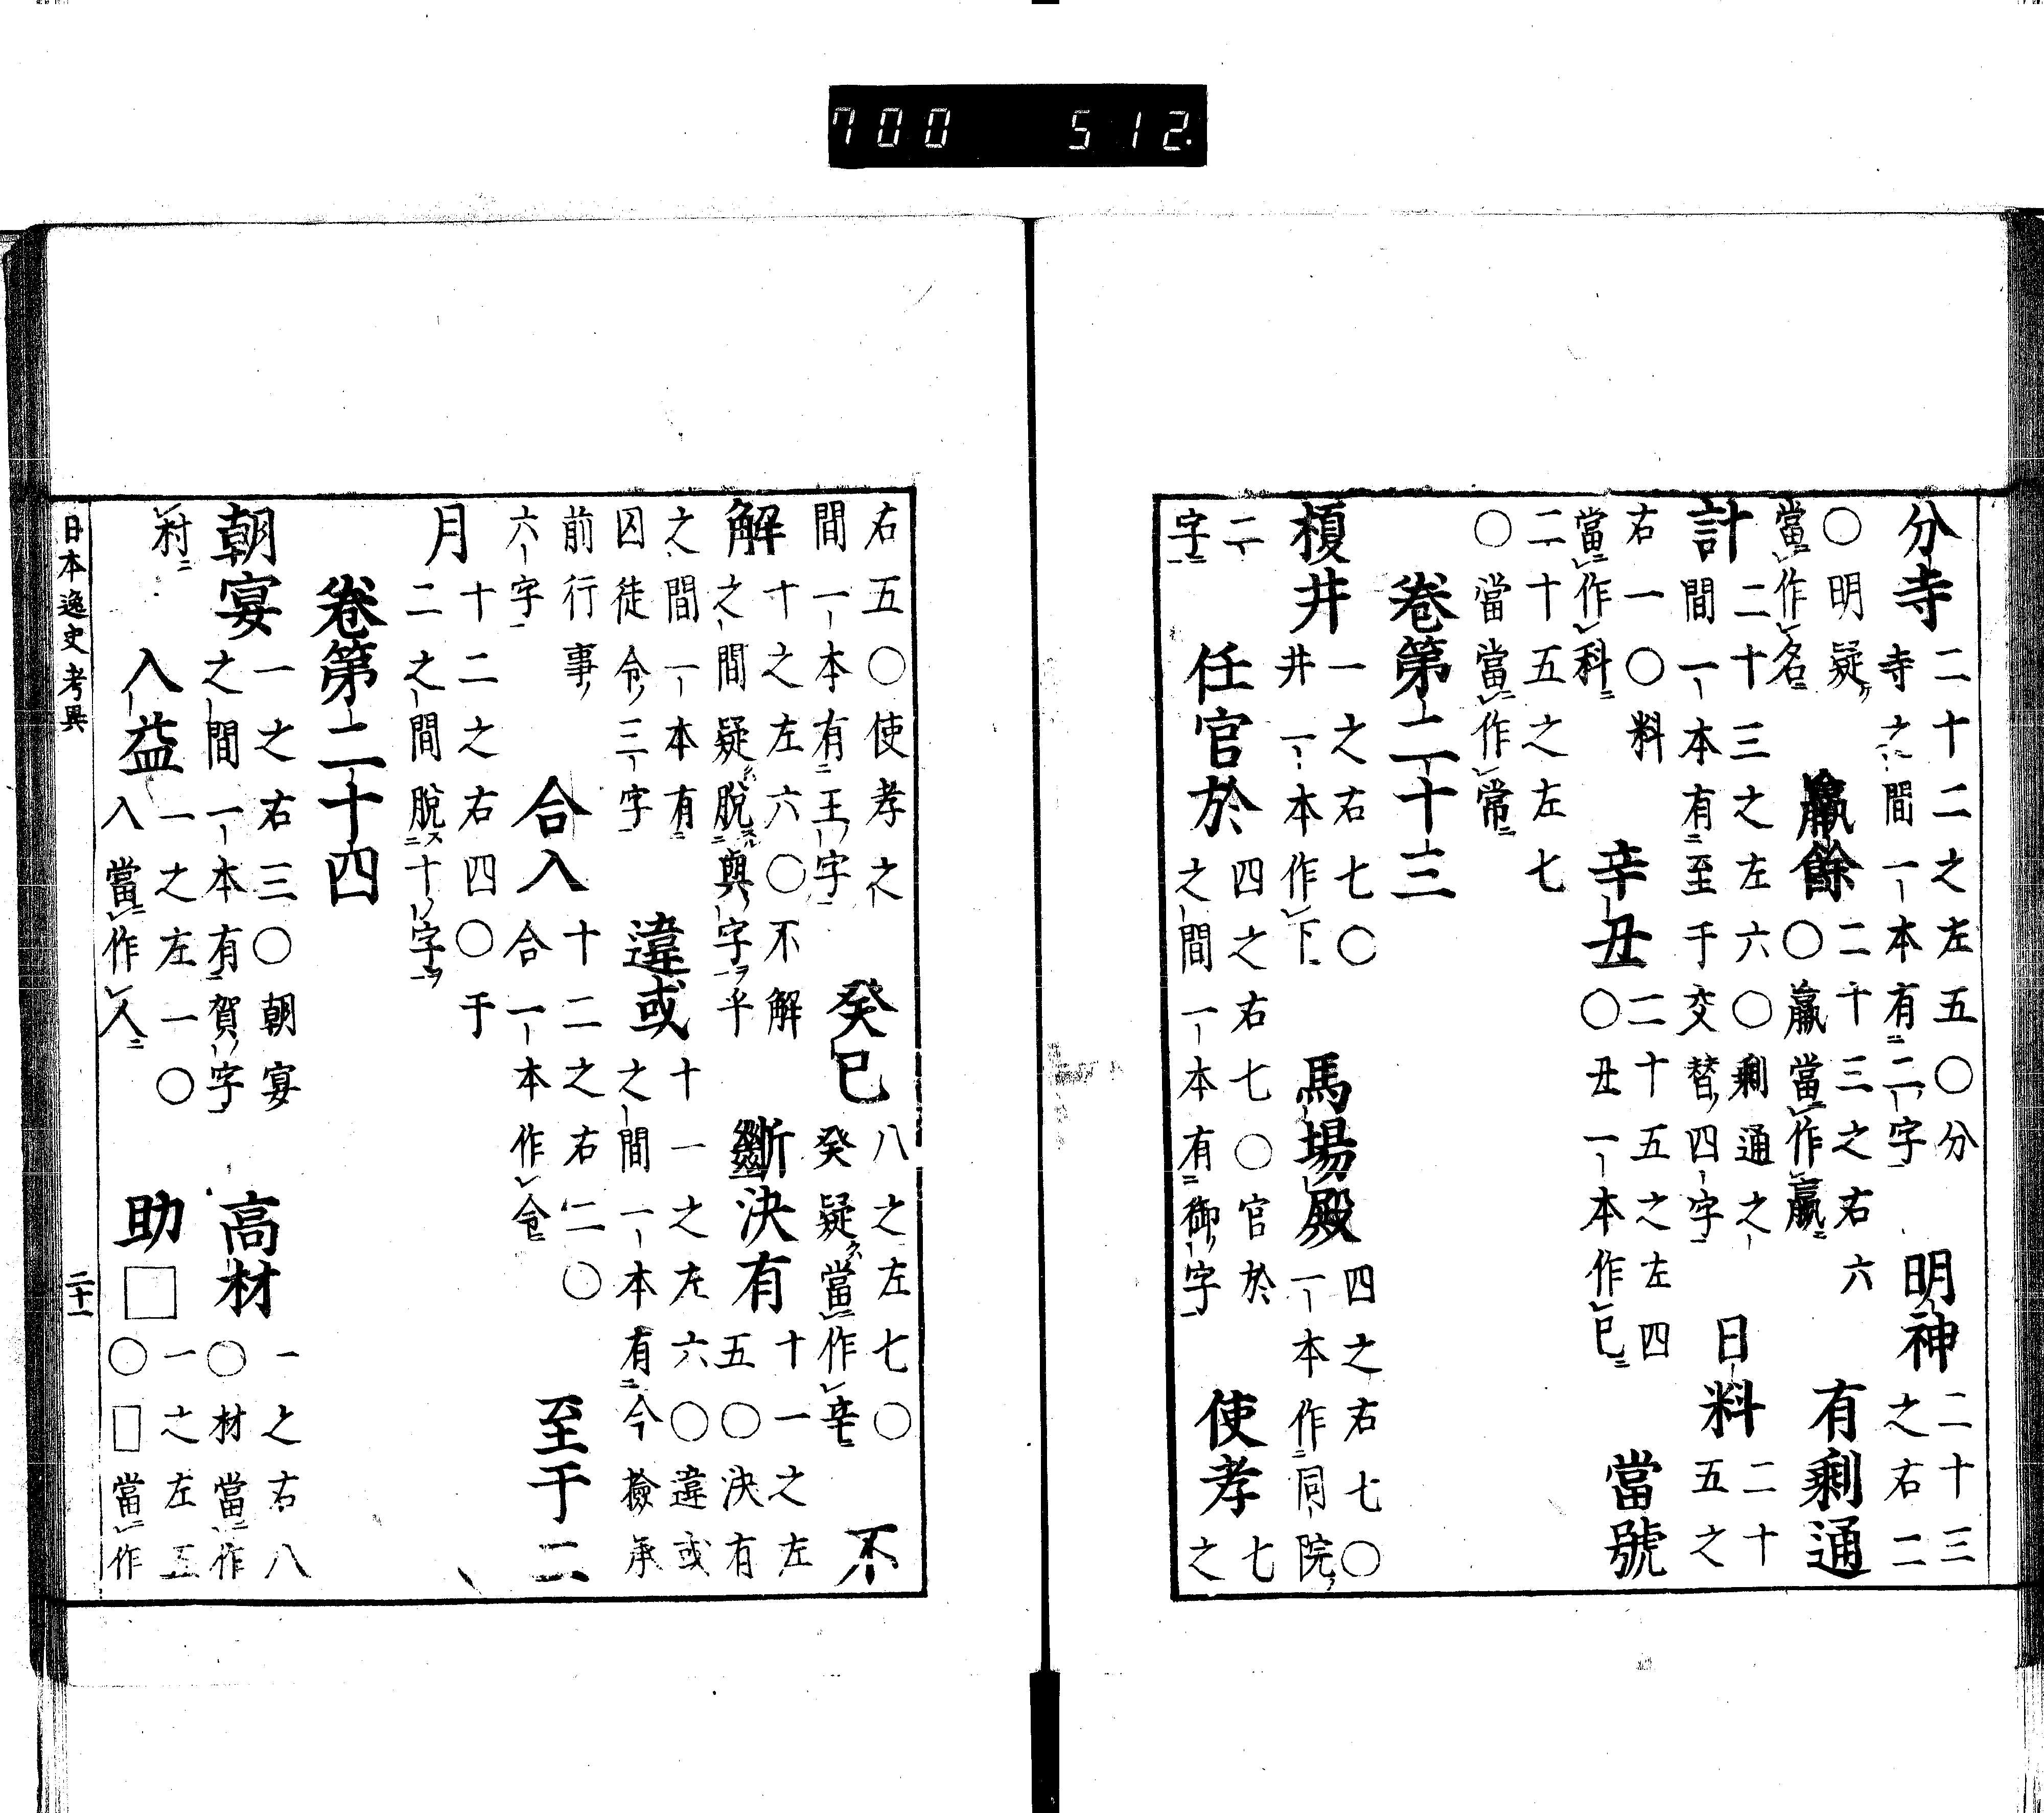 700 512
分寺二十二之左五〇分寺之間一本有二字明神二十三之右二
〇明疑當作名羸餘二十三之右六〇羸當作贏有剩通
計二十三之左六〇剩通之間一本有至于交替四字日料二十五之
右一〇料當作科辛丑二十五之左四〇丑一本作巳當號
二十五之左七〇當當作常
卷第二十三
榎井一之右七〇井一本作下馬場殿四之右七〇一本作同院
二字任官於四之右七〇官於之間一本有御字使孝七之
右五〇使孝之間一本有王字癸巳八之左七〇癸疑當作辛不
解十之左六〇不解之間疑脫與字乎斷決有十一之左五〇決有
之間一本有囚徒令三字違或十一之左六〇違或之間一本有今檢承
前行事六字合入十二之右二〇合一本作令至于二
月十二之右四〇于二之間脫十字
卷第二十四
朝宴一之右三〇朝宴之間一本有賀字高材一之右八〇材當作
村入益一之左一〇入當作人助□一之左五〇□當作
日本逸史考異 二十一